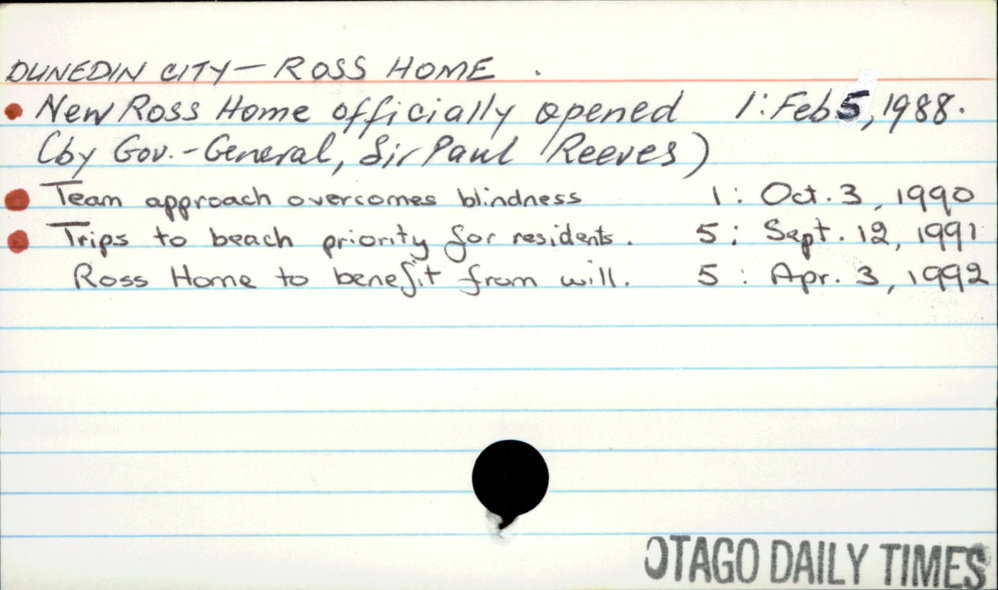 DUNEDIN CITY — ROSS HOME.
• New Ross Home officially opened 1: Feb 5, 1988.
(by Gov.-General, Sir Paul Reeves)
• Team approach overcomes blindness 1: Oct. 3, 1990
• Trips to beach priority for residents. 5: Sept. 12, 1991
Ross Home to benefit from will. 5: Apr. 3, 1992
OTAGO DAILY TIMES